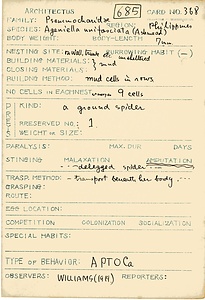 ARCHITECTUS 685 CARD NO. 368
FAMILY: Psammocharidae REGION: Philippines
SPECIES: Ageniella unifasciata (Ashmead)
BODY WEIGHT: BODY-LENGTH 7mm.
NESTING SITE: BURROWING HABIT (-)
BUILDING MATERIALS: } mud
CLOSING MATERIALS:
BUILDING METHOD: mud cells in rows
NO CELLS IN EACH NEST: 9 cells
KIND: a ground spider
PRESERVED NO.: 1
WEIGHT OR SIZE:
PARALYSIS: MAX. DUR DAYS
STINGING MALAXATION AMPUTATION
delegged spider
TRASP. METHOD - transport beneath her body.
GRASPING:
ROUTE:
EGG LOCATION:
COMPETITION COLONIZATION SOCIALIZATION
SPECIAL HABITS:
TYPE OF BEHAVIOR: APTOCa
OBSERVERS: WILLIAMS (1919) REPORTERS: